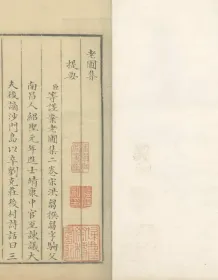 老圃集
提要
臣等謹案老圃集二卷宋洪芻撰芻字駒父
南昌人紹聖元年進士靖康中官至諫議大
夫後謫沙門島以卒劉克莊後村詩話曰三